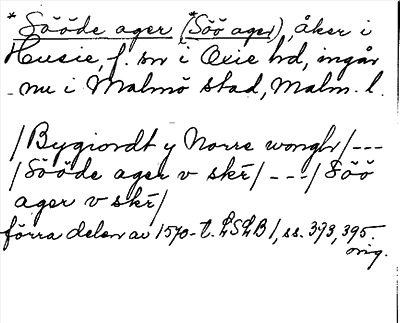 *Sööde ager (*Söö ager), åker i
Husie, f. sn i Oxie hd, ingår
nu i Malmö stad, Malm. l.
/Bygiordt y Norre wonghr/---
/Sööde ager v skř/ ---/Söö
ager v skř/
förra delen av 1570-t. LSLB 1, ss. 393, 395.
orig.